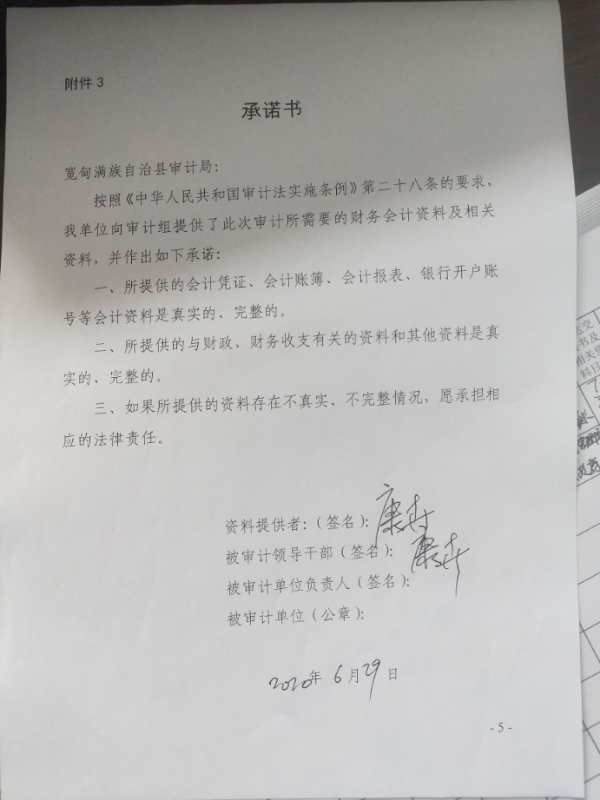 附件 3
承诺书
宽甸满族自治县审计局：
按照《中华人民共和国审计法实施条例》第二十八条的要求，
我单位向审计组提供了此次审计所需要的财务会计资料及相关
资料，并作出如下承诺：
一、所提供的会计凭证、会计账簿、会计报表、银行开户账
号等会计资料是真实的、完整的。
二、所提供的与财政、财务收支有关的资料和其他资料是真
实的、完整的。
三、如果所提供的资料存在不真实、不完整情况，愿承担相
应的法律责任。
资料提供者：（签名）：康
被审计领导干部（签名）：康
被审计单位负责人（签名）：
被审计单位（公章）：
2020年 6月29日
- 5 -